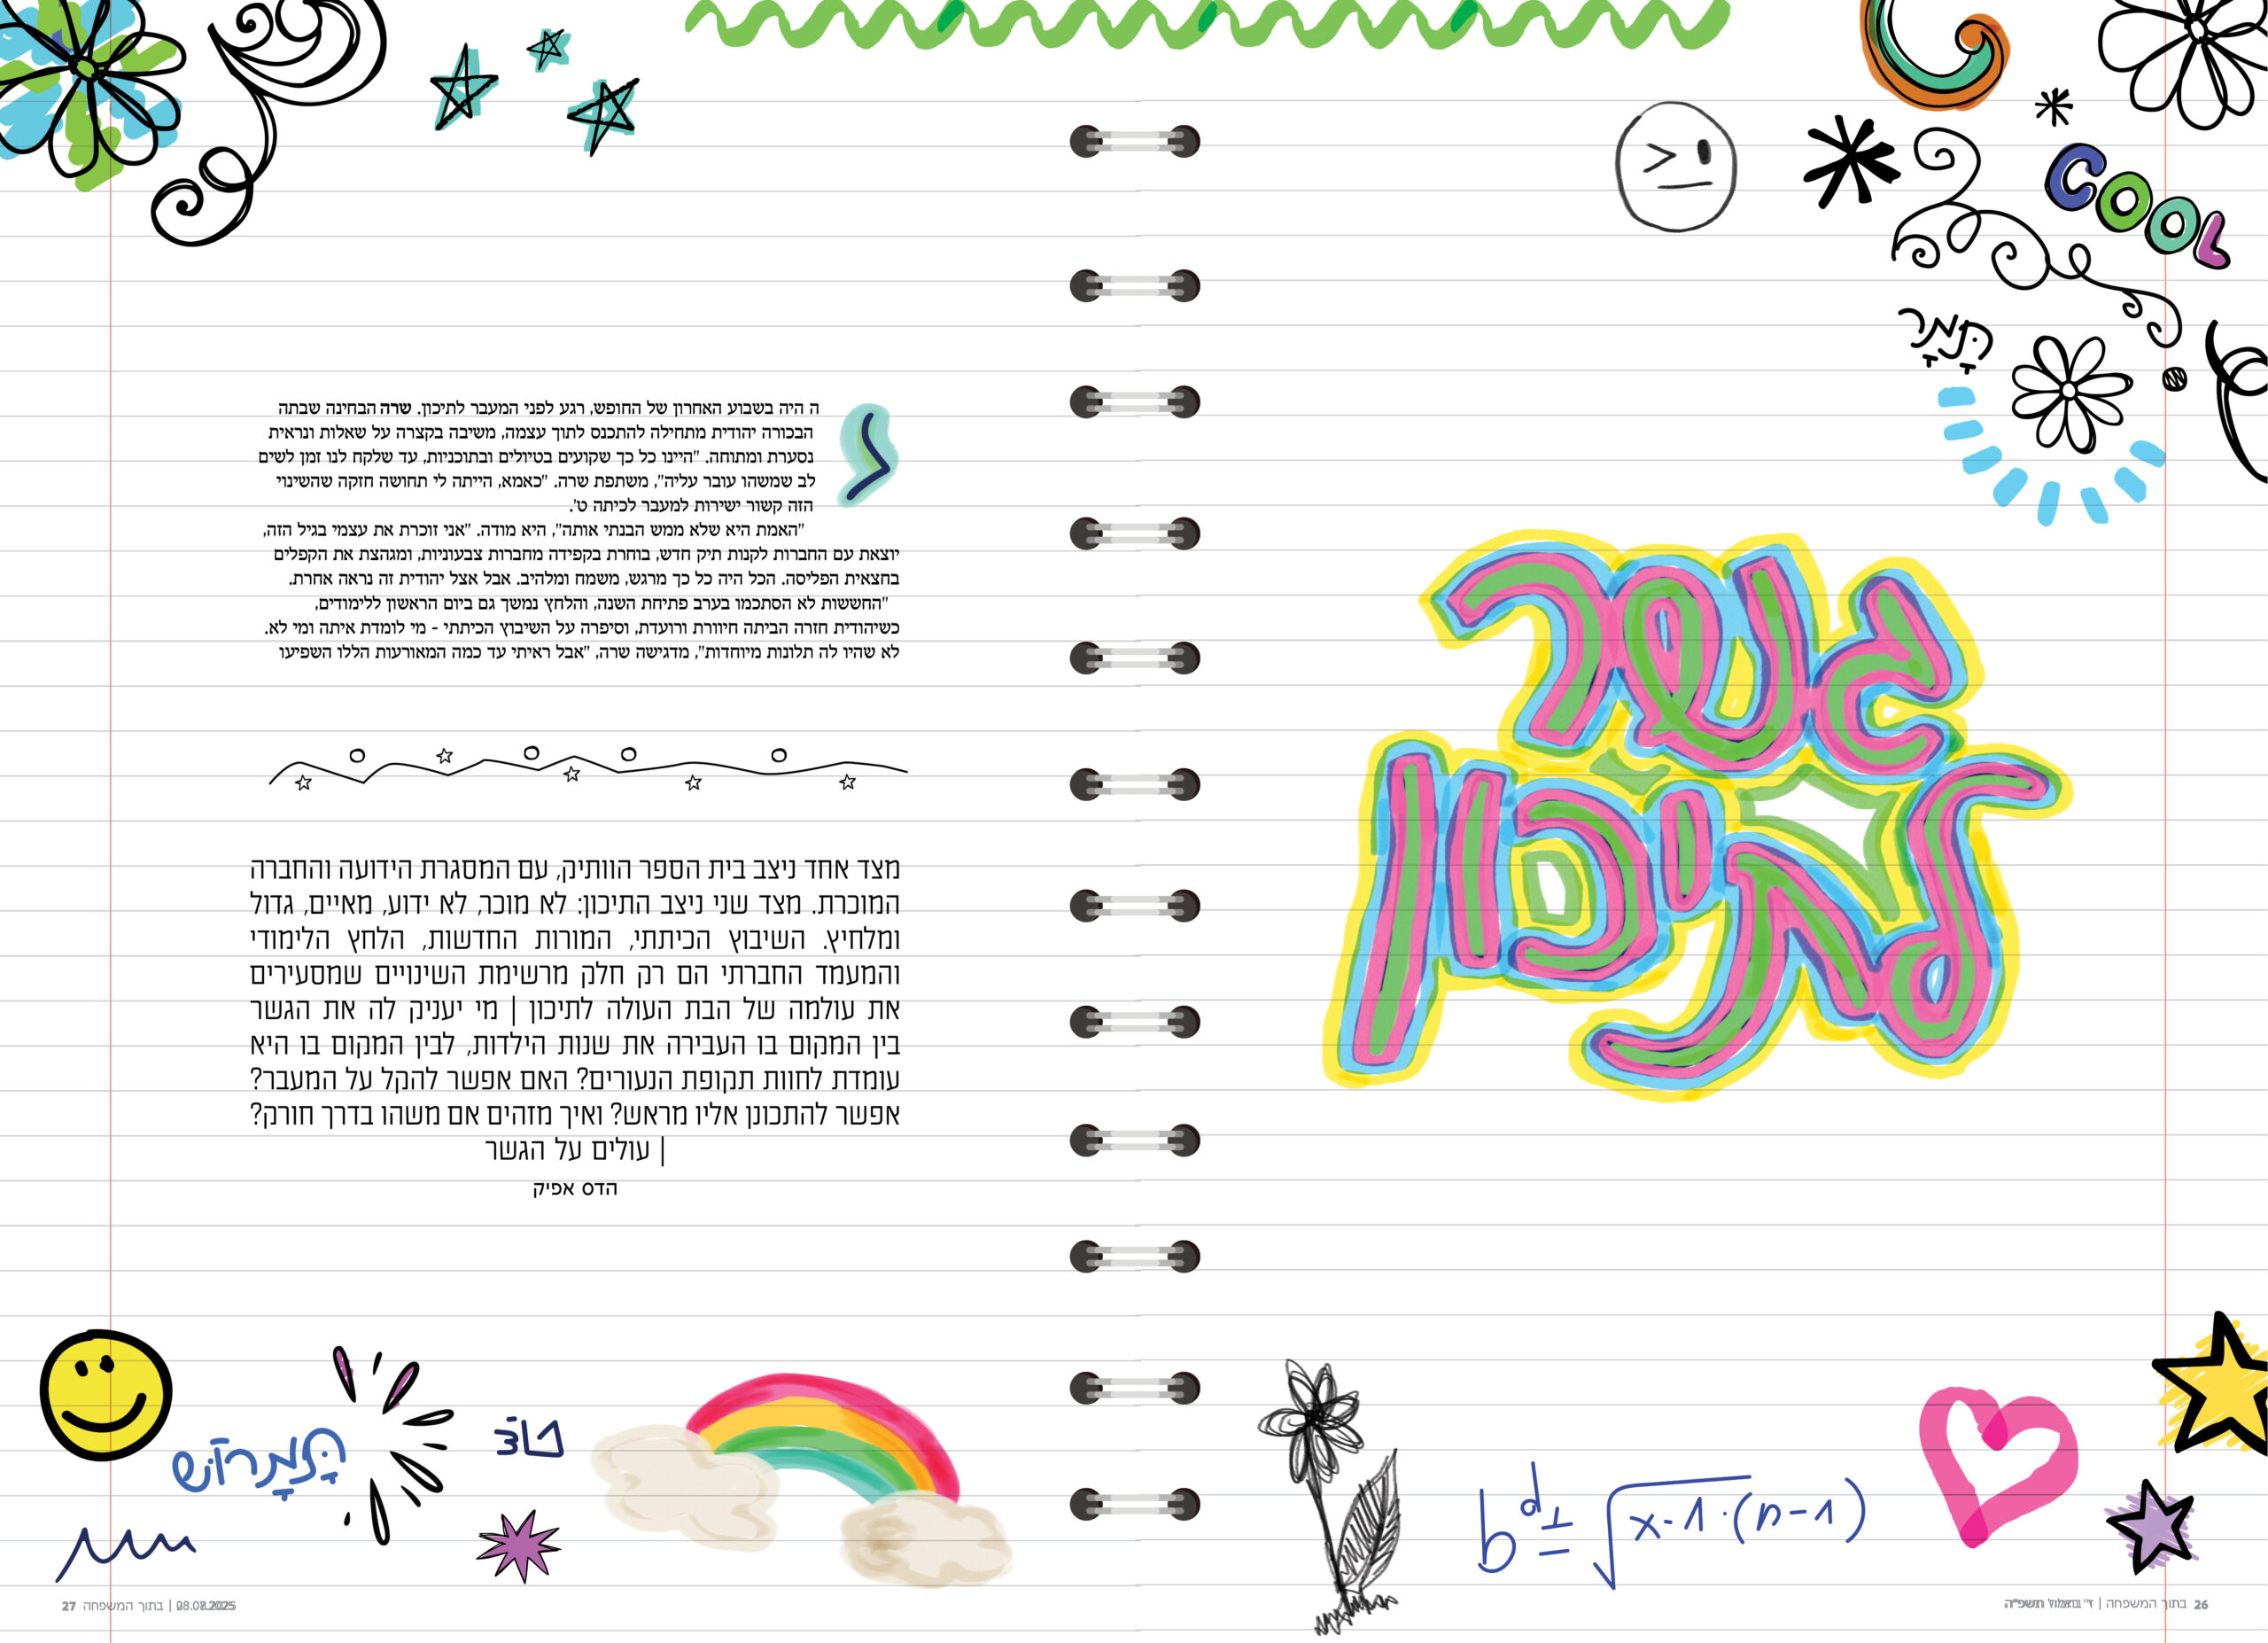 COOL
תָּמָר
גשר
לתיכון
b
d
√x-1·(n-1)
26 בתוך המשפחה |
זה היה בשבוע האחרון של החופש, רגע לפני המעבר לתיכון. שרה הבחינה שבתה
הבכורה יהודית מתחילה להתכנס לתוך עצמה, משיבה בקצרה על שאלות ונראית
נסערת ומתוחה. "היינו כל כך שקועים בטיולים ובתוכניות, עד שלקח לנו זמן לשים
לב שמשהו עובר עליה", משתפת שרה. "כאמא, הייתה לי תחושה חזקה שהשינוי
הזה קשור ישירות למעבר לכיתה ט'.
"האמת היא שלא ממש הבנתי אותה", היא מודה. "אני זוכרת את עצמי בגיל הזה,
יוצאת עם החברות לקנות תיק חדש, בוחרת בקפידה מחברות צבעוניות, ומגהצת את הקפלים
בחצאית הפליסה. הכל היה כל כך מרגש, משמח ומלהיב. אבל אצל יהודית זה נראה אחרת.
"החששות לא הסתכמו בערב פתיחת השנה, והלחץ נמשך גם ביום הראשון ללימודים,
כשיהודית חזרה הביתה חיוורת ורועדת, וסיפרה על השיבוץ הכיתתי - מי לומדת איתה ומי לא.
לא שהיו לה תלונות מיוחדות", מדגישה שרה, "אבל ראיתי עד כמה המאורעות הללו השפיעו
מצד אחד ניצב בית הספר הוותיק, עם המסגרת הידועה והחברה
המוכרת. מצד שני ניצב התיכון: לא מוכר, לא ידוע, מאיים, גדול
ומלחיץ. השיבוץ הכיתתי, המורות החדשות, הלחץ הלימודי
והמעמד החברתי הם רק חלק מרשימת השינויים שמסעירים
את עולמה של הבת העולה לתיכון | מי יעניק לה את הגשר
בין המקום בו העבירה את שנות הילדות, לבין המקום בו היא
עומדת לחוות תקופת הנעורים? האם אפשר להקל על המעבר?
אפשר להתכונן אליו מראש? ואיך מזהים אם משהו בדרך חורק?
| עולים על הגשר
הדס אפיק
תָּמָרוּשׁ
27 בתוך המשפחה |